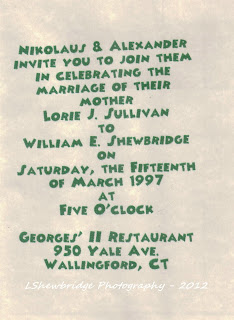 Nikolaus & Alexander
invite you to join them
in celebrating the
marriage of their
mother
Lorie J. Sullivan
to
William E. Shewbridge
on
Saturday, the Fifteenth
of March 1997
at
Five O'clock
Georges' II Restaurant
950 Yale Ave.
Wallingford, CT
LShewbridge Photography - 2012